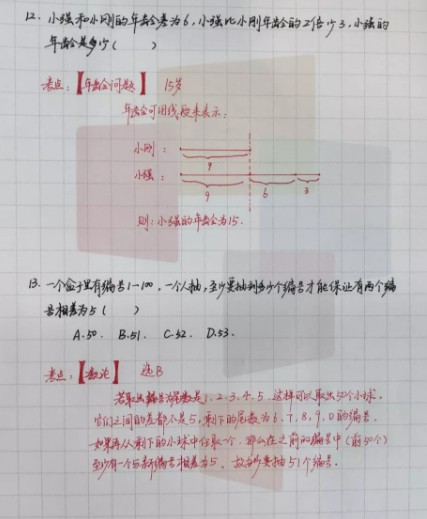 12. 小强和小刚的年龄差为6,小强比小刚年龄的2倍少3,小强的
年龄是多少( )
考点:【年龄问题】 15岁
年龄可用线段来表示:
小刚:
9
小强:
9 6 3
则:小强的年龄为15.
13. 一个盒子里有编号1-100,一个人抽,至少要抽到多少个编号才能保证有两个编
号相差为5( )
A.50. B.51. C.52. D.53.
考点:【数论】 选B
若取出编号尾数是1、2、3、4、5,这样可以取出50个小球,
它们之间的差都不是5,剩下的尾数为6、7、8、9、0的编号.
如果再从剩下的小球中任取一个,那么在之前的编号中(前50个)
至少有一个与新编号相差为5,故至少要抽51个编号.